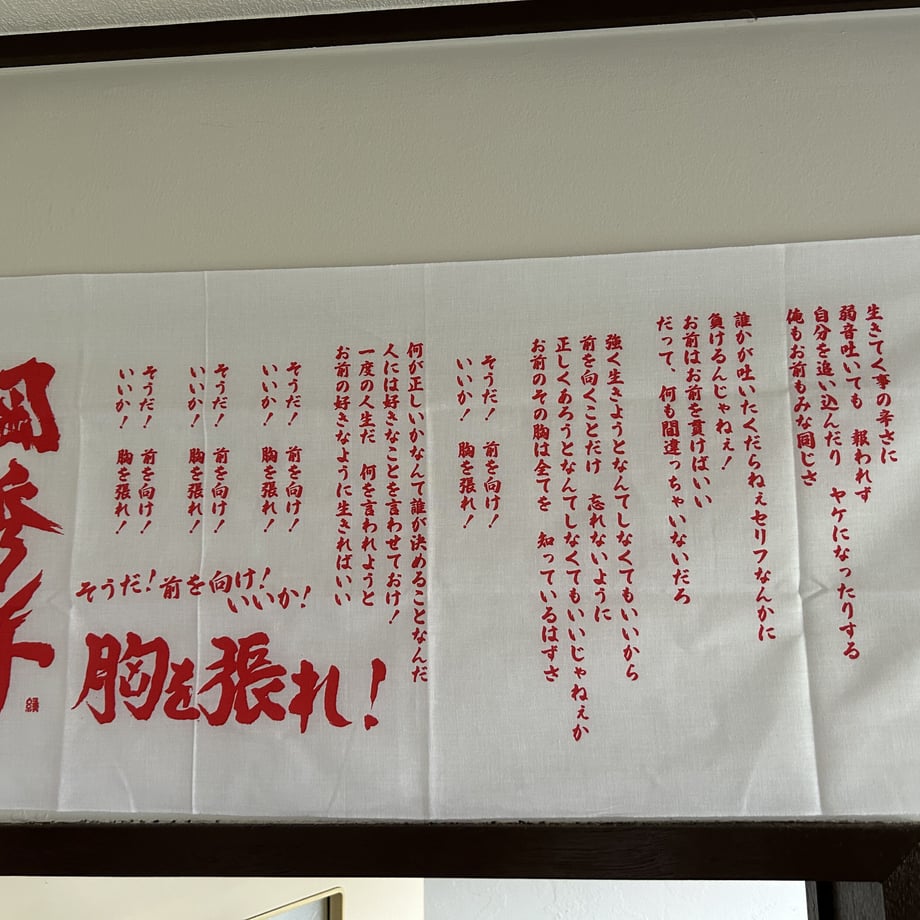 生きてく事の辛さに
弱音吐いても　報われず
自分を追い込んだり　ヤケになったりする
俺もお前もみな同じさ
誰かが吐いたくだらねぇセリフなんかに
負けるんじゃねぇ！
お前はお前を貫けばいい
だって、何も間違っちゃいないだろ
強く生きようとなんてしなくてもいいから
前を向くことだけ　忘れないように
正しくあろうとなんてしなくてもいいじゃねぇか
お前のその胸は全てを　知っているはずさ
そうだ！　前を向け！
いいか！　胸を張れ！
何が正しいかなんて誰が決めることなんだ
人には好きなことを言わせておけ！
一度の人生だ　何を言われようと
お前の好きなように生きればいい
そうだ！　前を向け！
いいか！　胸を張れ！
そうだ！　前を向け！
いいか！　胸を張れ！
そうだ！　前を向け！
いいか！　胸を張れ！
そうだ！前を向け！
いいか！
胸を張れ！